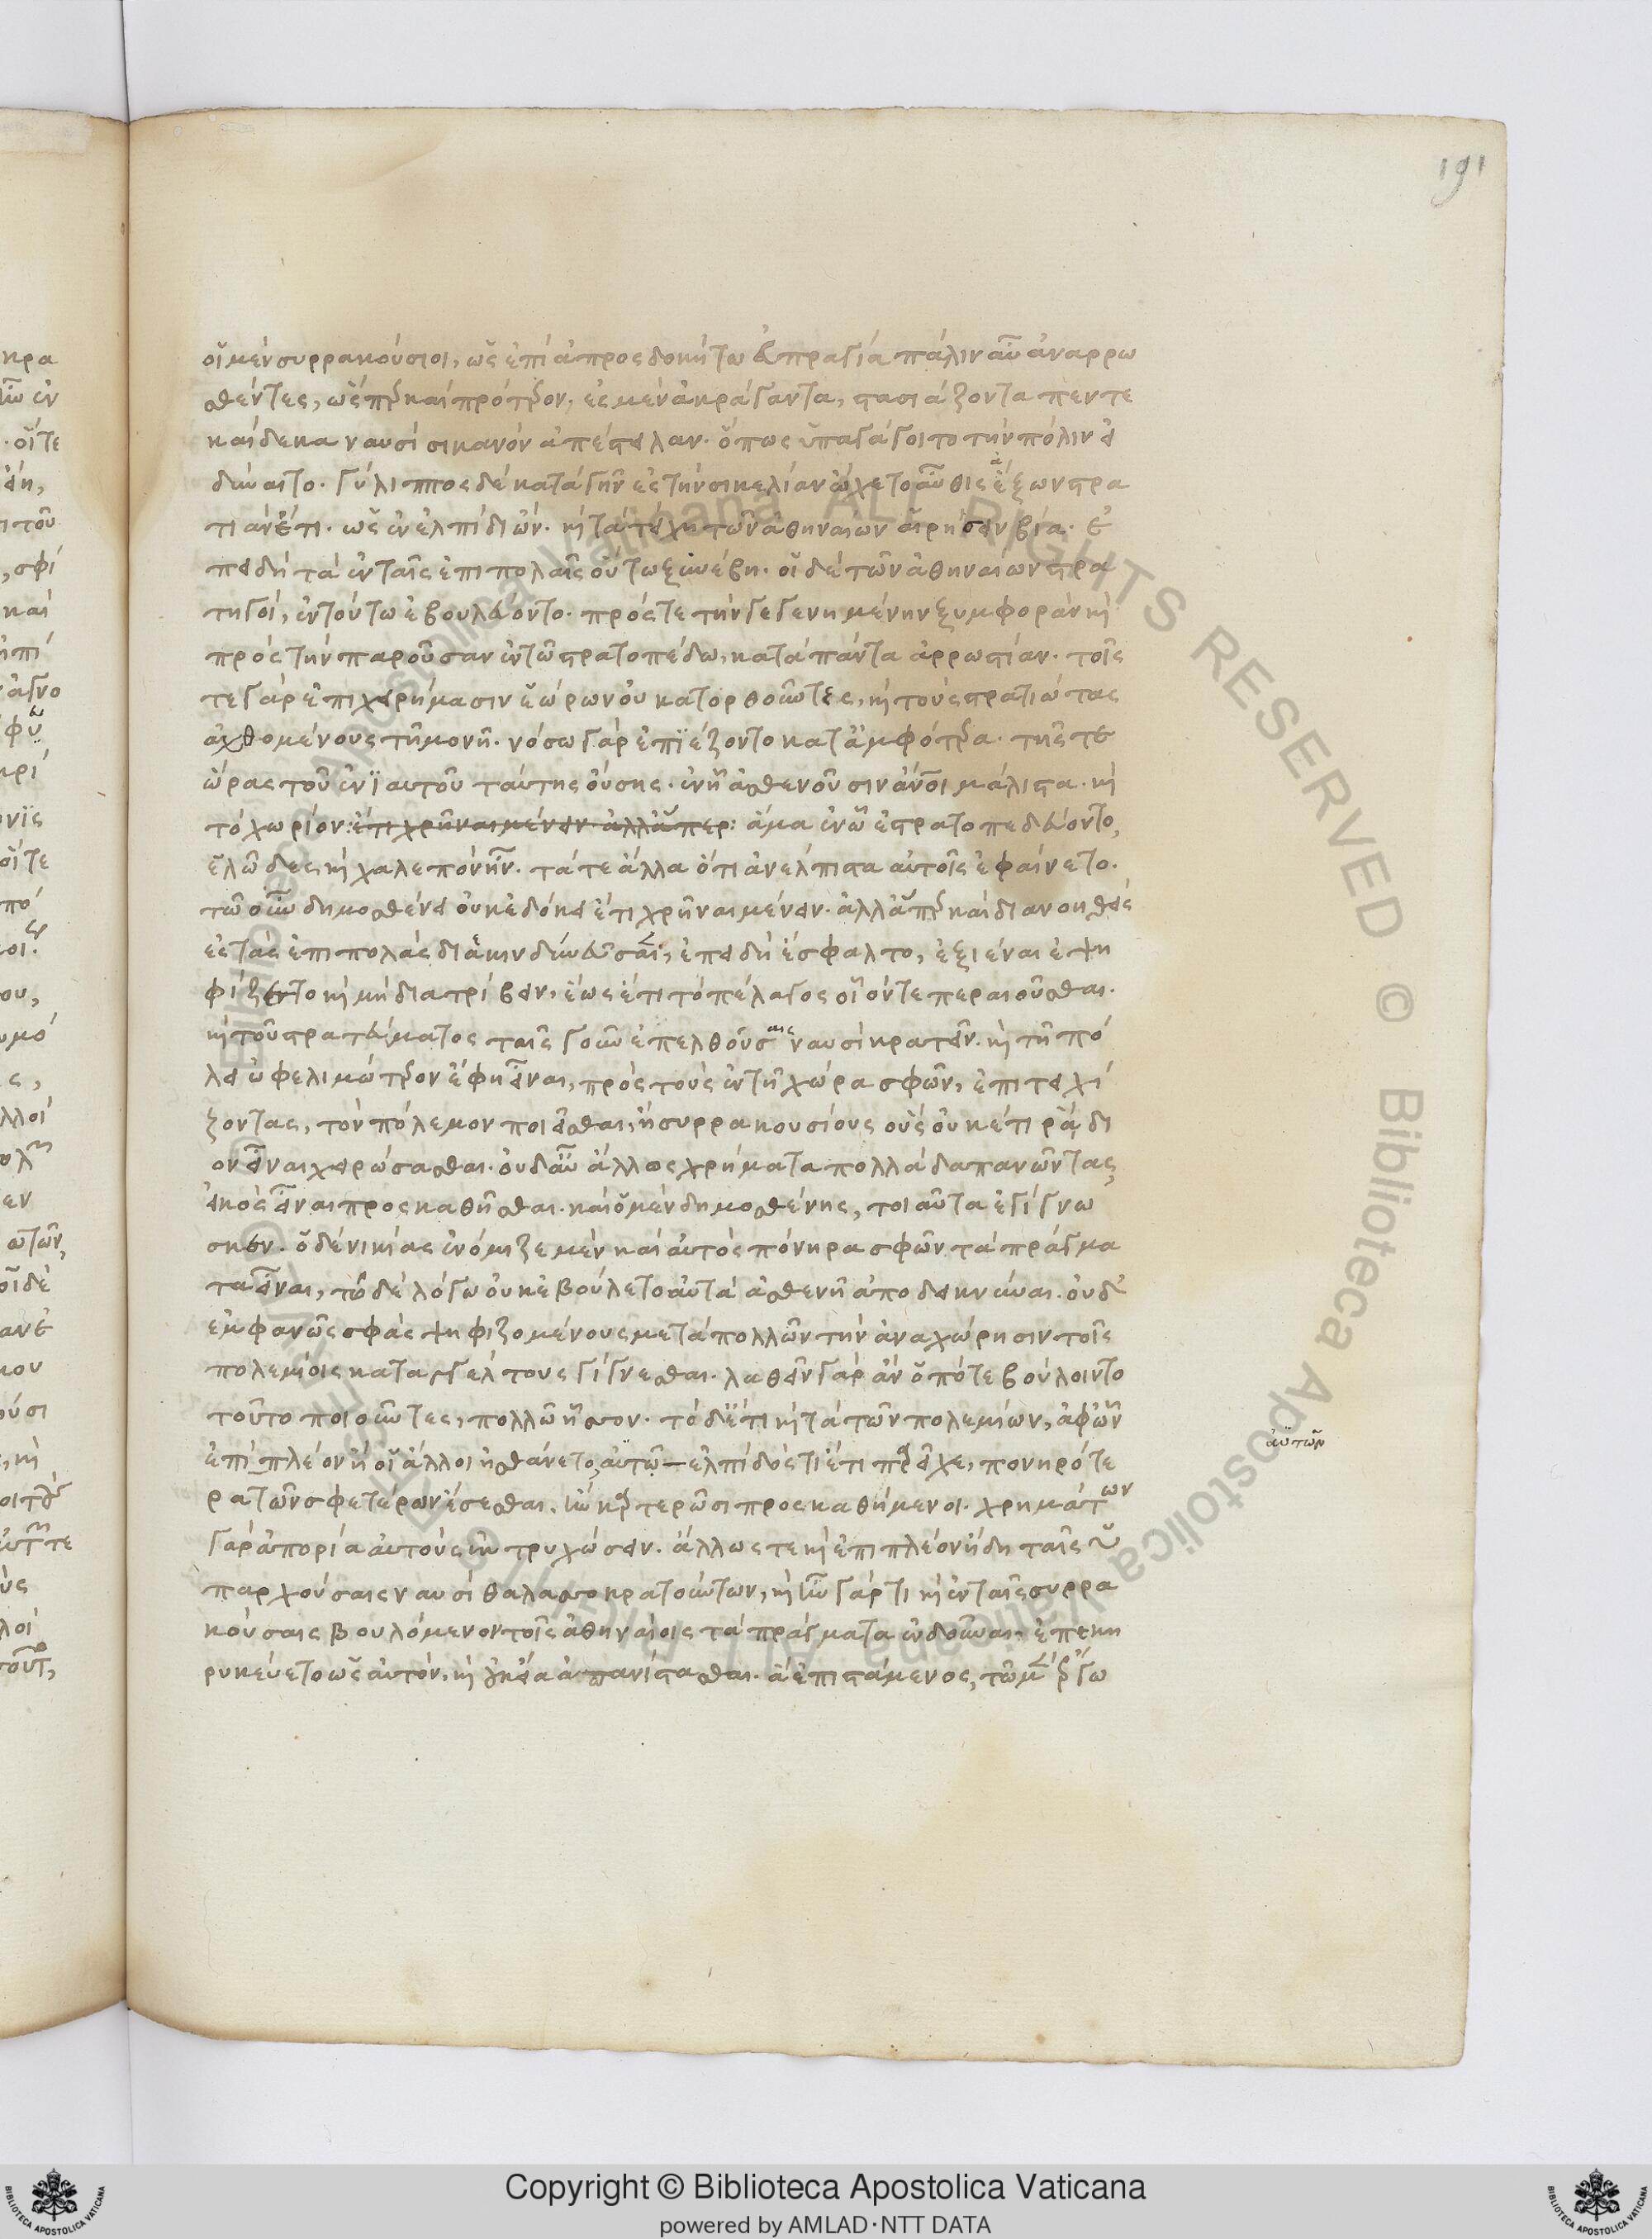 191
οἱ μὲν συρρακούσιοι, ὡς ἐπὶ ἀπροσδοκήτω εὐπραγία πάλιν αὖ ἀναρρω
σθέντες, ὥσπερ καὶ πρότερον, ἐς μὲν ἀκράγαντα, στασιάζοντα πεντε
καίδεκα ναυσὶ σικανὸν ἀπέστειλαν. ὅπως ὑπαγάγοιτο τὴν πόλιν εἰ
δύναιτο. γύλιππος δὲ κατὰ γῆν ἐς τὴν σικελίαν ὤχετο αὖθις ἄξων στρα
τιὰν ἔτι. ὡς ἐν ἐλπίδι ὢν. καὶ τὰ τείχη τῶν ἀθηναίων αἱρήσειν βία. ἐ
πειδὴ τὰ ἐν ταῖς ἐπιπολαῖς οὕτω ξυνέβη. οἱ δὲ τῶν ἀθηναίων στρα
τηγοὶ, ἐν τούτω ἐβουλεύοντο. πρός τε τὴν γεγενημένην ξυμφορὰν καὶ
πρὸς τὴν παροῦσαν ἐν τῶ στρατοπέδω, κατὰ πάντα ἀρρωστίαν. τοῖς
τε γὰρ ἐπιχειρήμασιν ἑώρων οὐ κατορθοῦντες, καὶ τοὺς στρατιώτας
ἀχθομένους τῆ μονῆ. νόσω γὰρ ἐπϊέζοντο κατ' ἀμφότερα. τῆς τε
ὥρας τοῦ ἐνϊαυτοῦ ταύτης οὔσης. ἐν ἧ ἀσθενοῦσιν ἄνοι μάλιστα. καὶ
τὸ χωρίον: ἔτι χρῆναι μένειν ἀλλ' ἅπερ: ἅμα ἐν ὧ ἐστρατοπεδεύοντο,
ἑλῶδες, καὶ χαλεπὸν ἦν. τά τε ἄλλα ὅτι ἀνέλπιστα αὐτοῖς ἐφαίνετο.
τῶ οὖν δημοσθένει οὐκ ἐδόκει ἔτι χρῆναι μένειν. ἀλλ' ἅπερ καὶ διανοηθεὶς
ἐς τὰς ἐπιπολὰς διεκινδύνευσεν, ἐπειδὴ ἔσφαλτο, ἐξιέναι ἐψη
φίζετο καὶ μὴ διατρίβειν, ἕως ἔτι τὸ πέλαγος οἷόν τε περαιοῦσθαι.
καὶ τοῦ στρατεύματος ταῖς γοῦν ἐπελθούσαις ναυσὶ κρατεῖν. καὶ τῆ πό
λει ὠφελιμώτερον ἔφη εἶναι, πρὸς τοὺς ἐν τῆ χώρα σφῶν, ἐπιτειχί
ζοντας, τὸν πόλεμον ποιεῖσθαι, ἢ συρρακουσίους οὓς οὐκέτι ράδι
ον εἶναι χειρώσασθαι. οὐδ' αὖ ἄλλως χρήματα πολλὰ δαπανῶντας,
εἰκὸς εἶναι προσκαθῆσθαι. καὶ ὁ μὲν δημοσθένης, τοιαῦτα ἐγίγνω
σκεν. ὁ δὲ νικίας ἐνόμιζε μὲν καὶ αὐτὸς πόνηρα σφῶν τὰ πράγμα
τα εἶναι, τῶ δὲ λόγω οὐκ ἐβούλετο αὐτὰ ἀσθενῆ ἀποδεικνύναι. οὐδ'
ἐμφανῶς σφᾶς ψηφιζομένους μετὰ πολλῶν τὴν ἀναχώρησιν τοῖς
πολεμίοις καταγγέλτους γίγνεσθαι. λαθεῖν γὰρ ἂν ὁπότε βούλοιντο
τοῦτο ποιοῦντες, πολλῶ ἧσσον. τὸ δὲ ἔτι καὶ τὰ τῶν πολεμίων, ἀφ' ὧν
ἐπὶ πλέον ἢ οἱ ἄλλοι ἠσθάνετο, αὐτῶ ἐλπίδος τι ἔτι παρεῖχε, πονηρότε
αὐτῶν
ρα τῶν σφετέρων ἔσεσθαι. ἢν καρτερῶσι προσκαθήμενοι. χρημάτων
γὰρ ἀπορία αὐτοὺς ἐκτρυχώσειν. ἄλλως τε καὶ ἐπὶ πλέον ἤδη ταῖς ὑ
παρχούσαις ναυσὶ θαλασσοκρατούντων, καὶ ἦν γάρ τι καὶ ἐν ταῖς συρρα
κούσαις βουλόμενον τοῖς ἀθηναίοις τὰ πράγματα ἐνδοῦναι, ἐπεκη
ρυκεύετο ὡς αὐτὸν, καὶ οὐκ εἴα ἀπανίστασθαι. ἃ ἐπιστάμενος, τῶ μὲν ἔργω
Copyright © Biblioteca Apostolica Vaticana
powered by AMLAD·NTT DATA